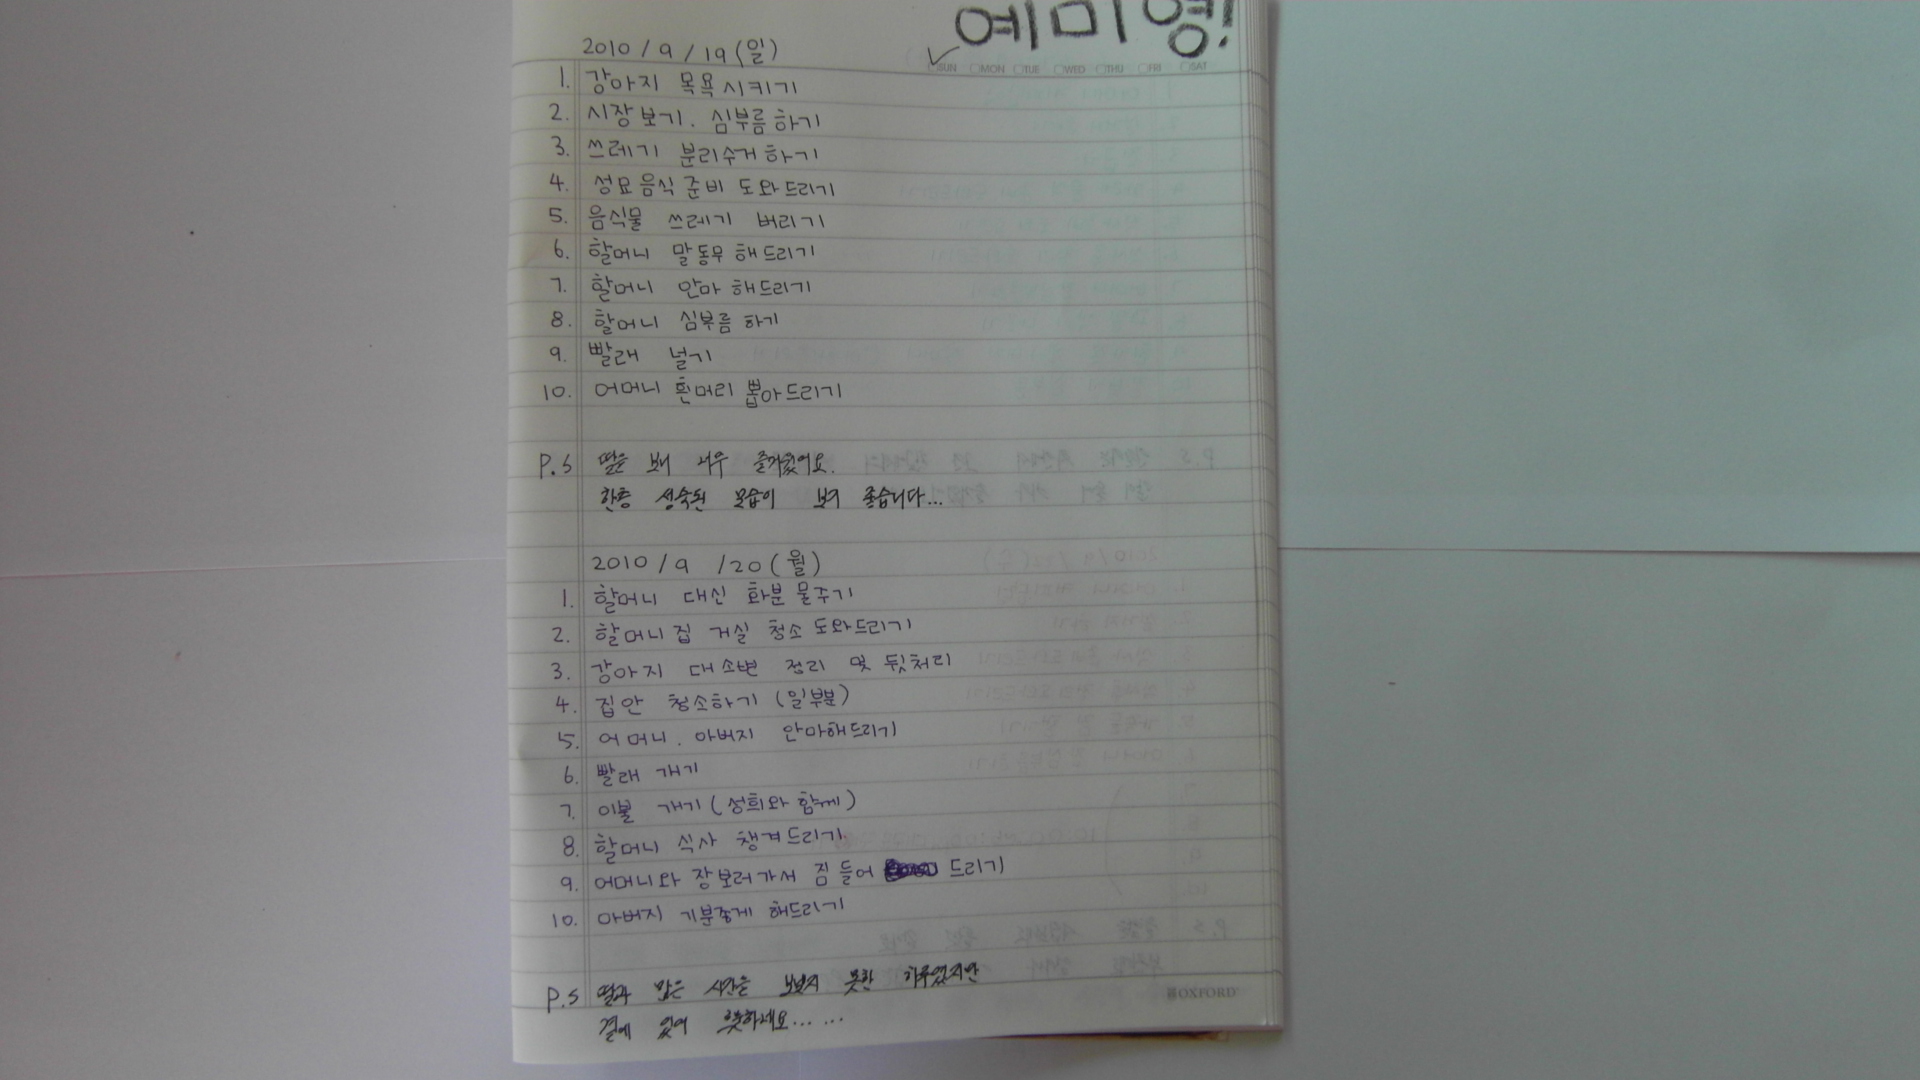 예미영!
2010/9/19(일)
SUN MON TUE WED THU FRI SAT
1. 강아지 목욕시키기
2. 시장보기. 심부름하기
3. 쓰레기 분리수거하기
4. 성묘음식준비 도와드리기
5. 음식물 쓰레기 버리기
6. 할머니 말동무 해드리기
7. 할머니 안마 해드리기
8. 할머니 심부름 하기
9. 빨래 널기
10. 어머니 흰머리 뽑아드리기
P.S 딸은 보니 너무 즐거웠어요.
한층 성숙된 모습이 보기 좋습니다...
2010/9/20(월)
1. 할머니 대신 화분 물주기
2. 할머니집 거실 청소 도와드리기
3. 강아지 대소변 정리 및 뒷처리
4. 집안 청소하기 (일부분)
5. 어머니. 아버지 안마해드리기
6. 빨래 개기
7. 이불 개기 (성희와 함께)
8. 할머니 식사 챙겨드리기
9. 어머니와 장보러가서 짐 들어 드리기
10. 아버지 기분좋게 해드리기
P.S 딸과 많은 시간을 보내지 못한 하루였지만
곁에 있어 흐뭇하네요... ...
OXFORD